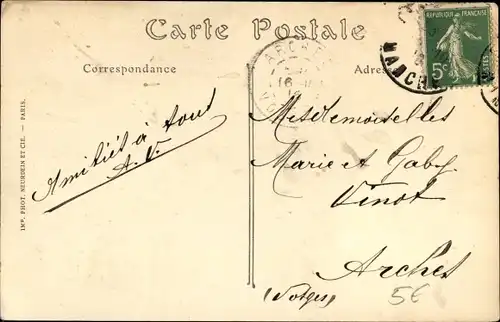 Carte Postale
Correspondance
Adres
RÉPUBLIQUE FRANÇAISE
5c
ARCHES
16
MARCHA
Amitiés à tous
A. V.
Mesdemoiselles
Marie et Gaby
Vinot
Arches
(Vosges)
5€
IMP. PHOT. NEURDEIN ET CIE. — PARIS.